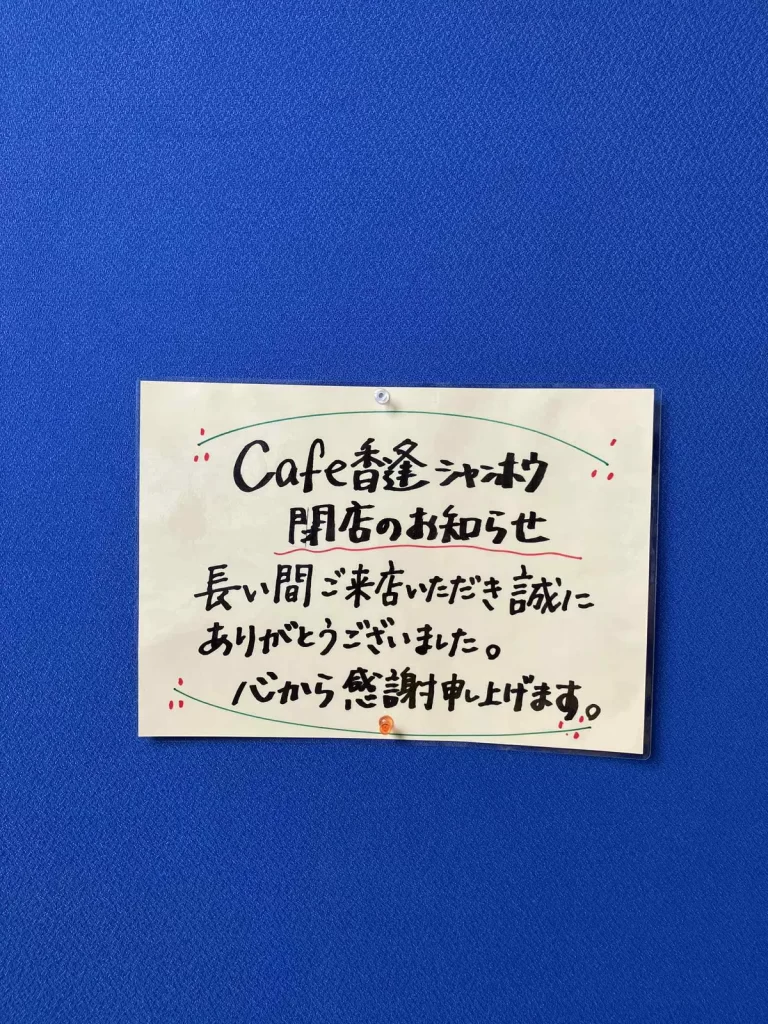 Cafe香逢 シャンホウ
閉店のお知らせ
長い間ご来店いただき誠に
ありがとうございました。
心から感謝申し上げます。